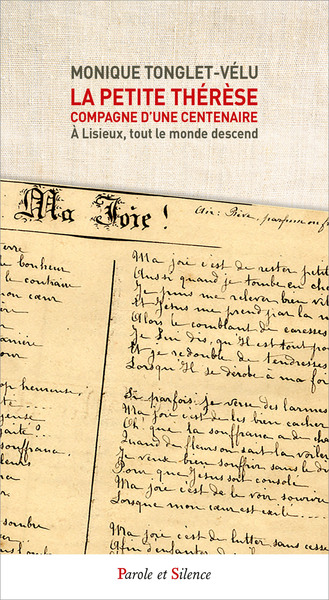 MONIQUE TONGLET-VÉLU
LA PETITE THÉRÈSE
COMPAGNE D'UNE CENTENAIRE
À Lisieux, tout le monde descend
Ma Joie!
Air: Rêve, parfum ou
bonheur
le contraire
mon cœur
heureuse,
souffrance
fleurs
Ma joie c'est de rester petit
Aussi quand je tombe en che
Je puis me relever bien vit
Et Jésus me prend par la m
Alors le comblant de caresses
Je Lui dis, qu'Il est tout po
Et je redouble de tendresses
Lorsqu'Il se dérobe à ma fo
Si parfois je verse des larmes
Ma joie c'est de les bien cacher
Oh! que la souffrance a de cha
Quand de fleurs on sait la voiler
Je veux bien souffrir sans le di
Pour que Jésus soit consolé
Ma joie c'est de le voir sourire
Lorsque mon cœur est exilé
Ma joie c'est de lutter sans cess
Afin d'enfanter
Parole et Silence